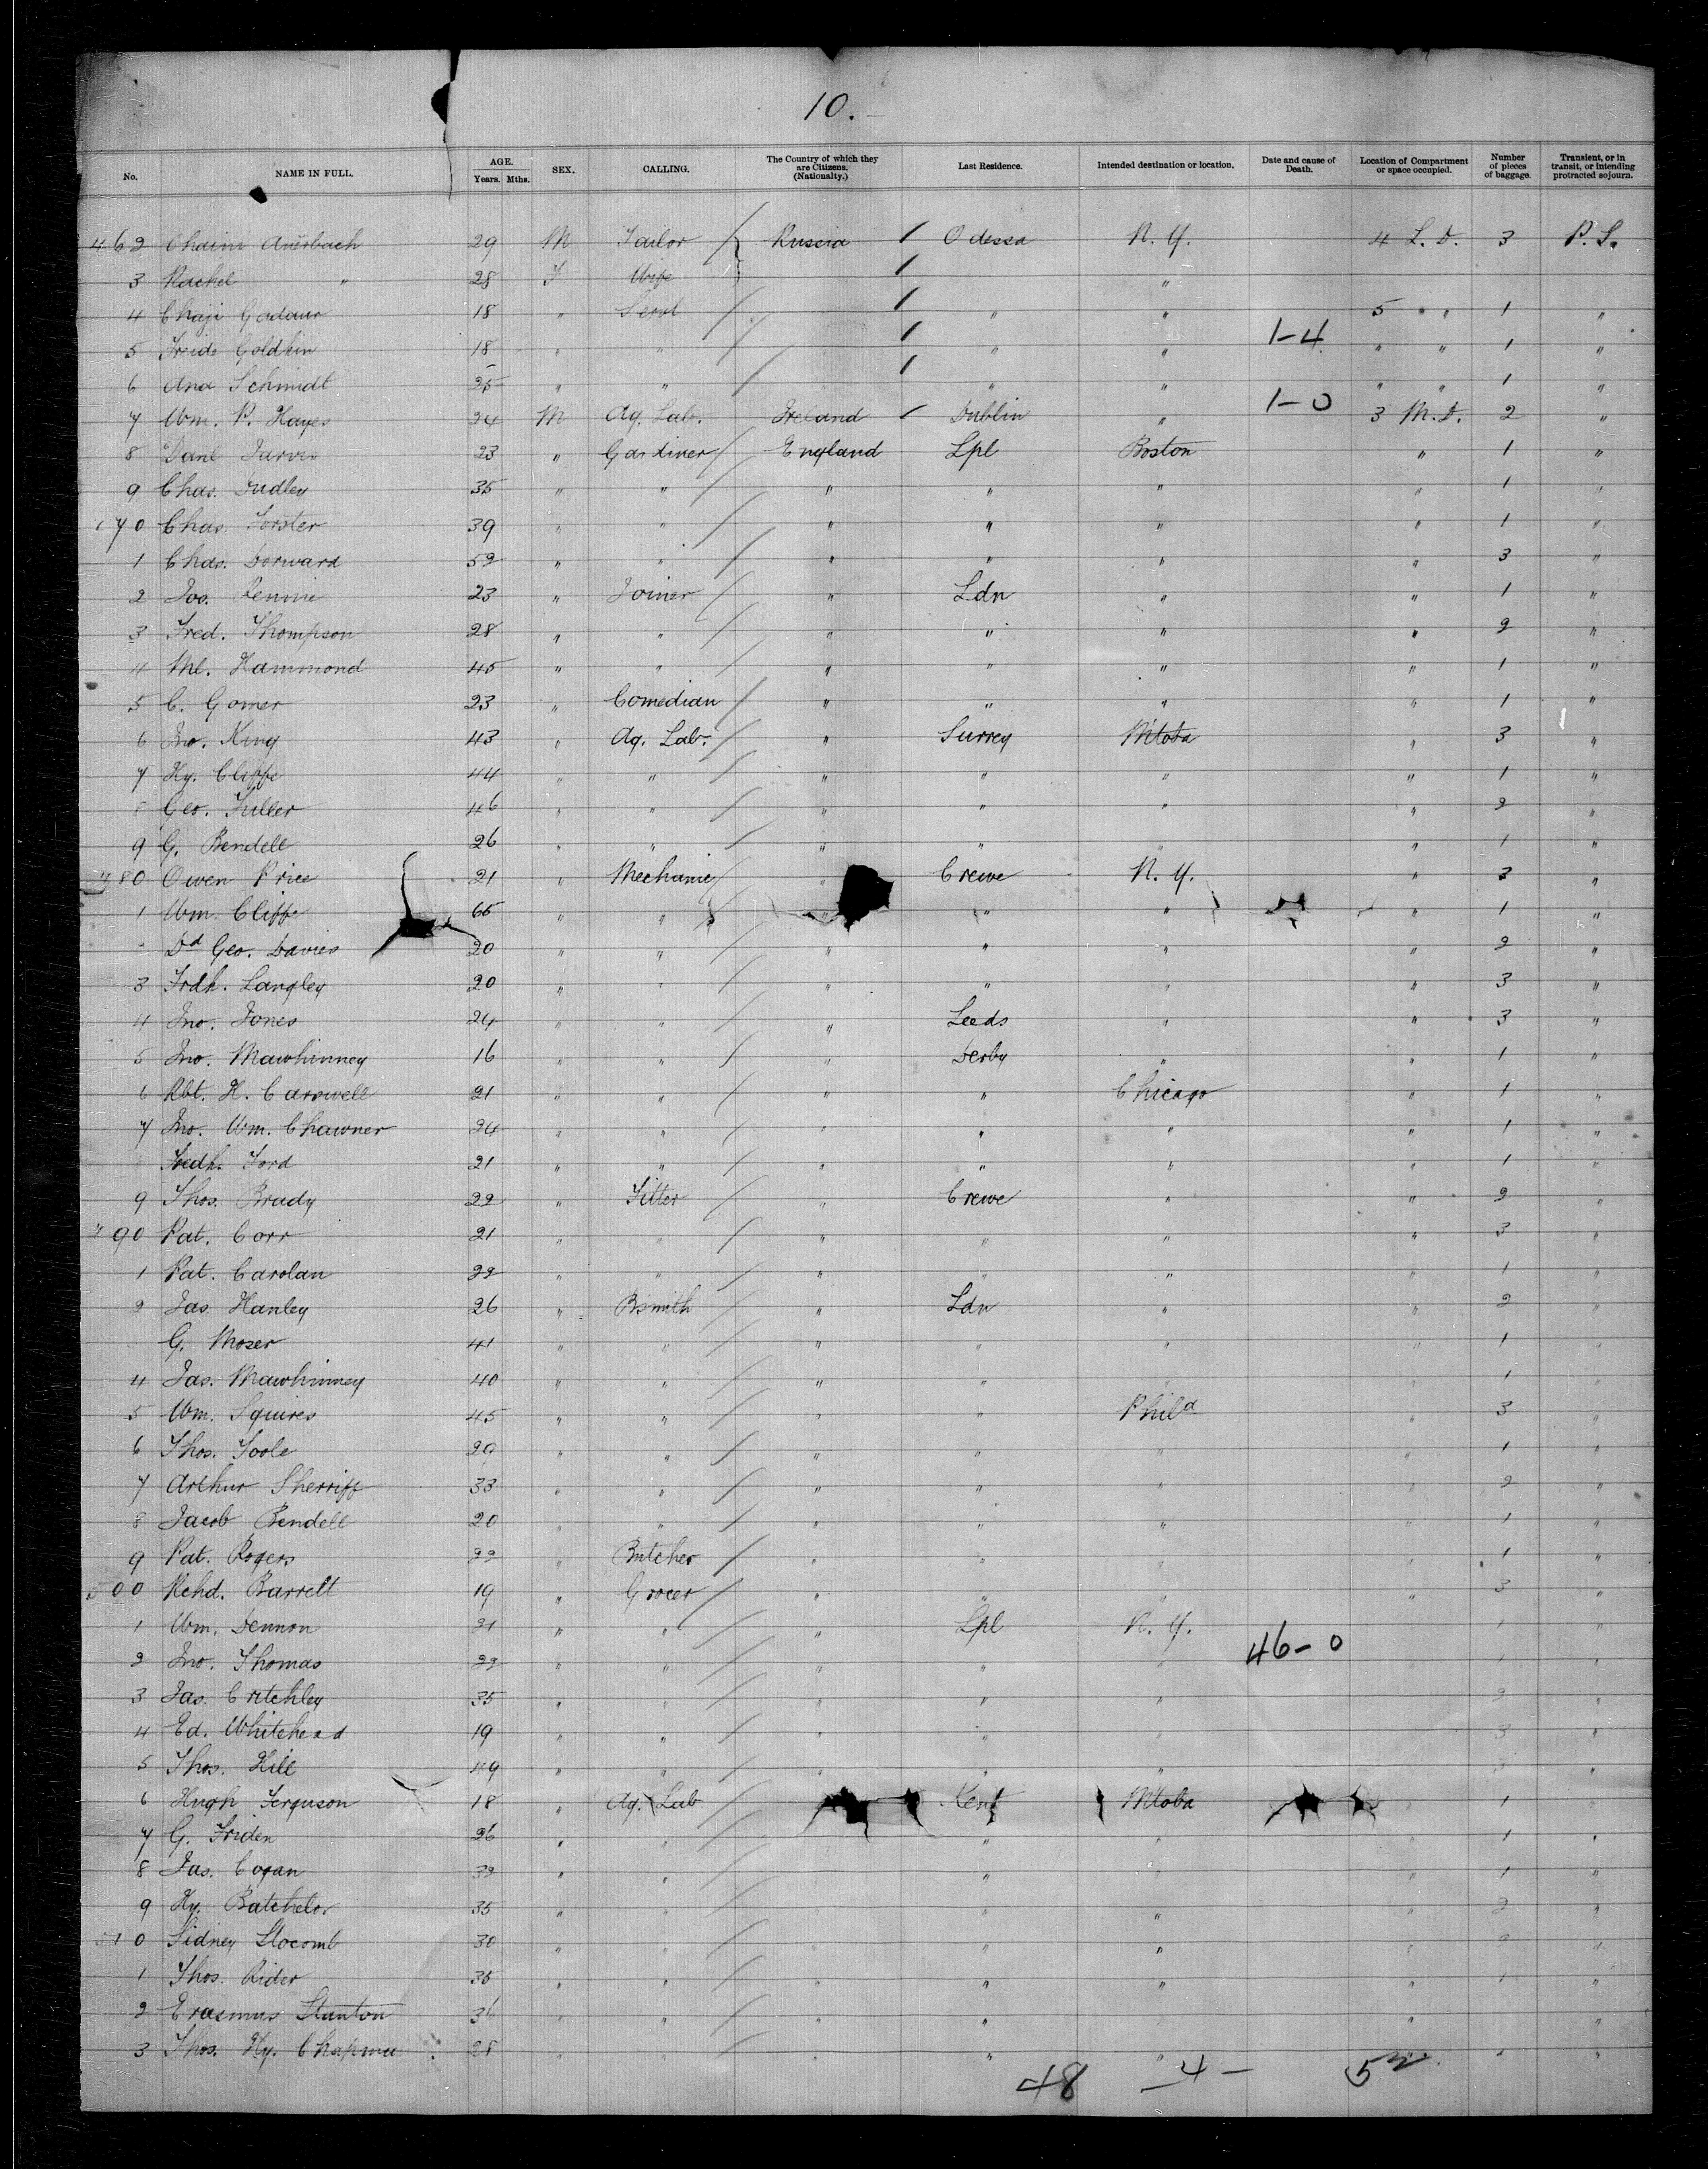 10.
No. NAME IN FULL. AGE. Years. Mths. SEX. CALLING. The Country of which they are Citizens. (Nationalty.) Last Residence. Intended destination or location. Date and cause of Death. Location of Compartment or space occupied. Number of pieces of baggage. Transient, or in transit, or intending protracted sojourn.
462 Chaim Auerbach 29 M Tailor Russia Odessa N. Y. 4 L. D. 3 P. S.
3 Rachel " 28 F Wife "
4 Chaji Gadaur 18 " Servt " " 5 " " 1 "
5 Freide Goldkin 18 " " " " 1-4 " " 1 "
6 Ana Schmidt 25 " " " " " " 1 "
7 Wm. P. Hayes 24 M Ag. Lab. Ireland Dublin " 1-0 3 M. D. 2 "
8 Danl Jarvis 23 " Gardiner England Lpl Boston " 1 "
9 Chas. Dudley 35 " " " " " " 1 "
470 Chas. Forster 39 " " " " " " 1 "
1 Chas. Dorward 52 " " " " " " 3 "
2 Jos. Rennie 23 " Joiner " Ldn " " 1 "
3 Fred. Thompson 28 " " " " " " 2 "
4 Ml. Hammond 45 " " " " " " 1 "
5 C. Gomer 23 " Comedian " " " " 1 "
6 Jno. King 43 " Ag. Lab. " Surrey M'toba " 3 "
7 Hy. Cliffe 44 " " " " " " 1 "
8 Geo. Fuller 46 " " " " " " 2 "
9 G. Bendell 26 " " " " " " 1 "
480 Owen Price 21 " Mechanic " Crewe N. Y. " 3 "
1 Wm. Cliffe 65 " " " " " " 1 "
Dd Geo. Davies 20 " " " " " " 2 "
3 Fredk. Langley 20 " " " " " " 3 "
4 Jno. Jones 24 " " " Leeds " " 3 "
5 Jno. Mawhinney 16 " " " Derby " " 1 "
6 Rbt. H. Carswell 21 " " " " Chicago " 1 "
7 Jno. Wm. Chawner 24 " " " " " " 1 "
Fredk. Ford 21 " " " " " " 1 "
9 Thos. Brady 22 " Fitter " Crewe " " 2 "
490 Pat. Corr 21 " " " " " " 3 "
1 Pat. Carolan 22 " " " " " " 1 "
2 Jas. Hanley 26 " Bsmith " Ldn " " 2 "
G. Moser 41 " " " " " " 1 "
4 Jas. Mawhinney 40 " " " " " " 1 "
5 Wm. Squires 45 " " " " Phila " 3 "
6 Thos. Toole 29 " " " " " " 1 "
7 Arthur Sherriff 33 " " " " " " 2 "
8 Jacob Bendell 20 " " " " " " 1 "
9 Pat. Rogers 22 " Butcher " " " " 1 "
500 Rchd. Barrett 19 " Grocer " " " " 3 "
1 Wm. Dennon 21 " " " Lpl N. Y. 1 "
2 Jno. Thomas 22 " " " " " 46-0 1 "
3 Jas. Critchley 35 " " " " " 2 "
4 Ed. Whitehead 19 " " " " " 3 "
5 Thos. Hill 49 " " " " " 3 "
6 Hugh Ferguson 18 " Ag. Lab Kent M'toba 1 "
7 G. Friden 26 " " " " " " 1 "
8 Jas. Cogan 39 " " " " " " 1 "
9 Hy. Batchelor 35 " " " " " " 2 "
510 Sidney Slocomb 30 " " " " " " "
1 Thos. Rider 35 " " " " " " 1 "
2 Erasmus Stanton 36 " " " " " " "
3 Thos. Hy. 28 " " " " " " "
48 -4- 52